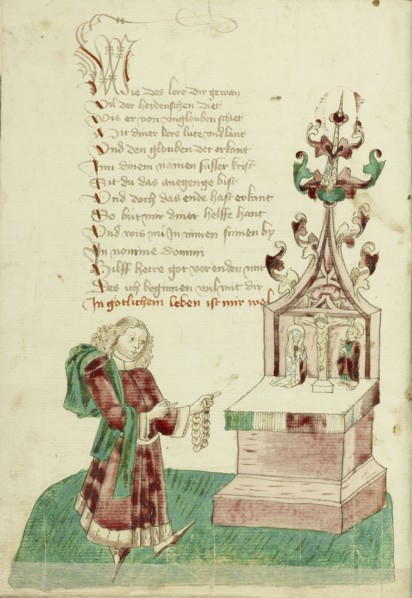 Wie des lere dir gewan
Vil der heidenschen diet
Wie er von unglouben schiet
Mit diner lere lute und lant
Und den glouben det erkant
Inn dinem namen süsser krist
Sit du das anegenge bist
Und doch das ende hast erkant
So but mir diner helffe hant
Und wis mi in minen sinnen by
In nomine domini
Hilff herre got verenden mir
Des ich beginnen wil mit dir
In götlichem leben ist mir wol